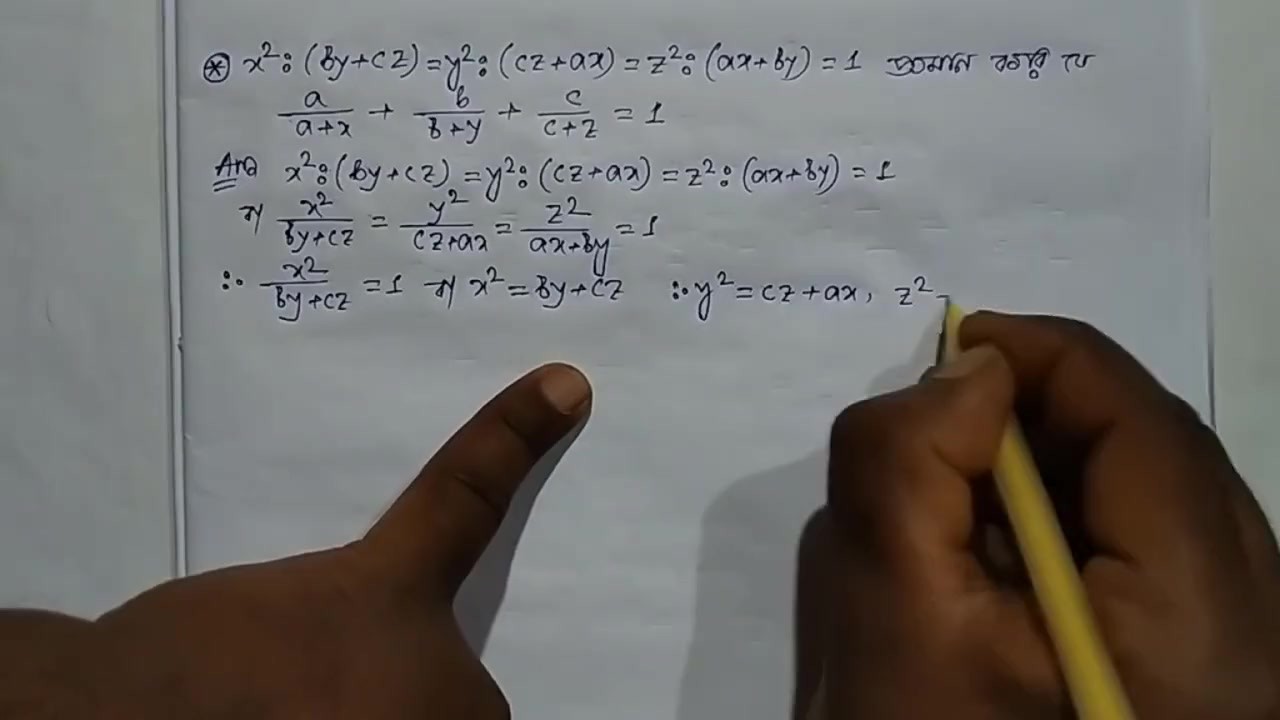 ⊛ x²:(by+cz)=y²:(cz+ax)=z²:(ax+by)=1 প্রমাণ করি যে
a/(a+x) + b/(b+y) + c/(c+z) = 1
Ans x²:(by+cz)=y²:(cz+ax)=z²:(ax+by)=1
বা x²/(by+cz) = y²/(cz+ax) = z²/(ax+by) = 1
∴ x²/(by+cz) = 1 বা x²=by+cz ∴ y²=cz+ax, z²-